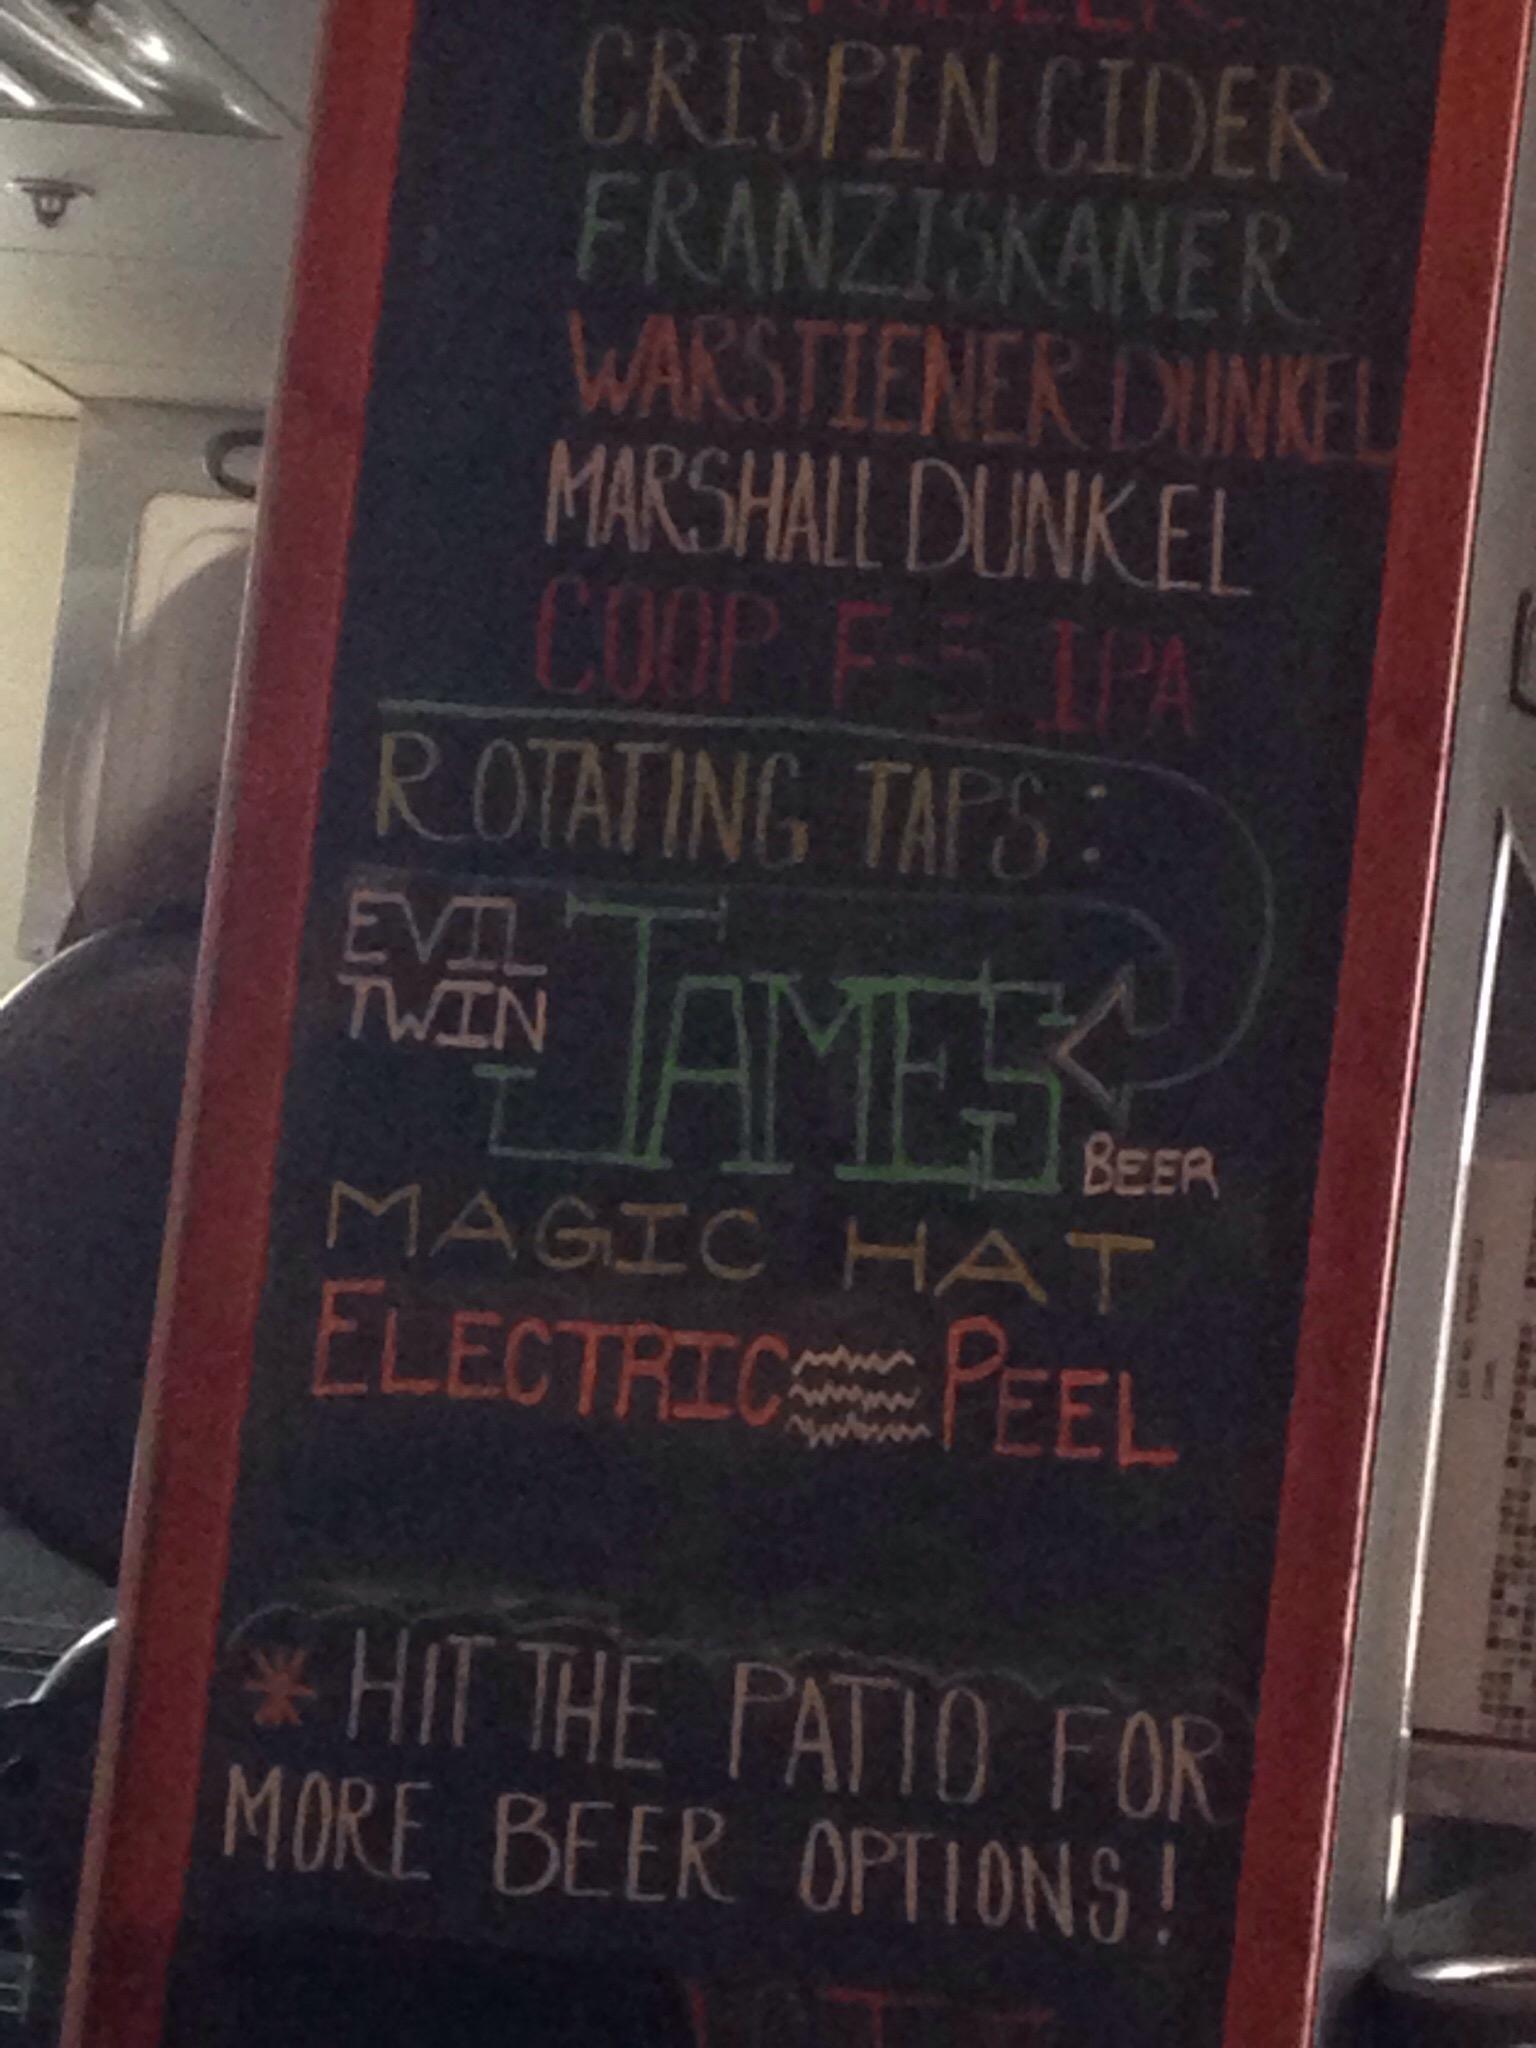 CRISPIN CIDER
FRANZISKANER
WARSTIENER DUNKEL
MARSHALL DUNKEL
COOP F-5 IPA
ROTATING TAPS:
EVIL
TWIN
JAMES
BEER
MAGIC HAT
ELECTRIC PEEL
* HIT THE PATIO FOR
MORE BEER OPTIONS!